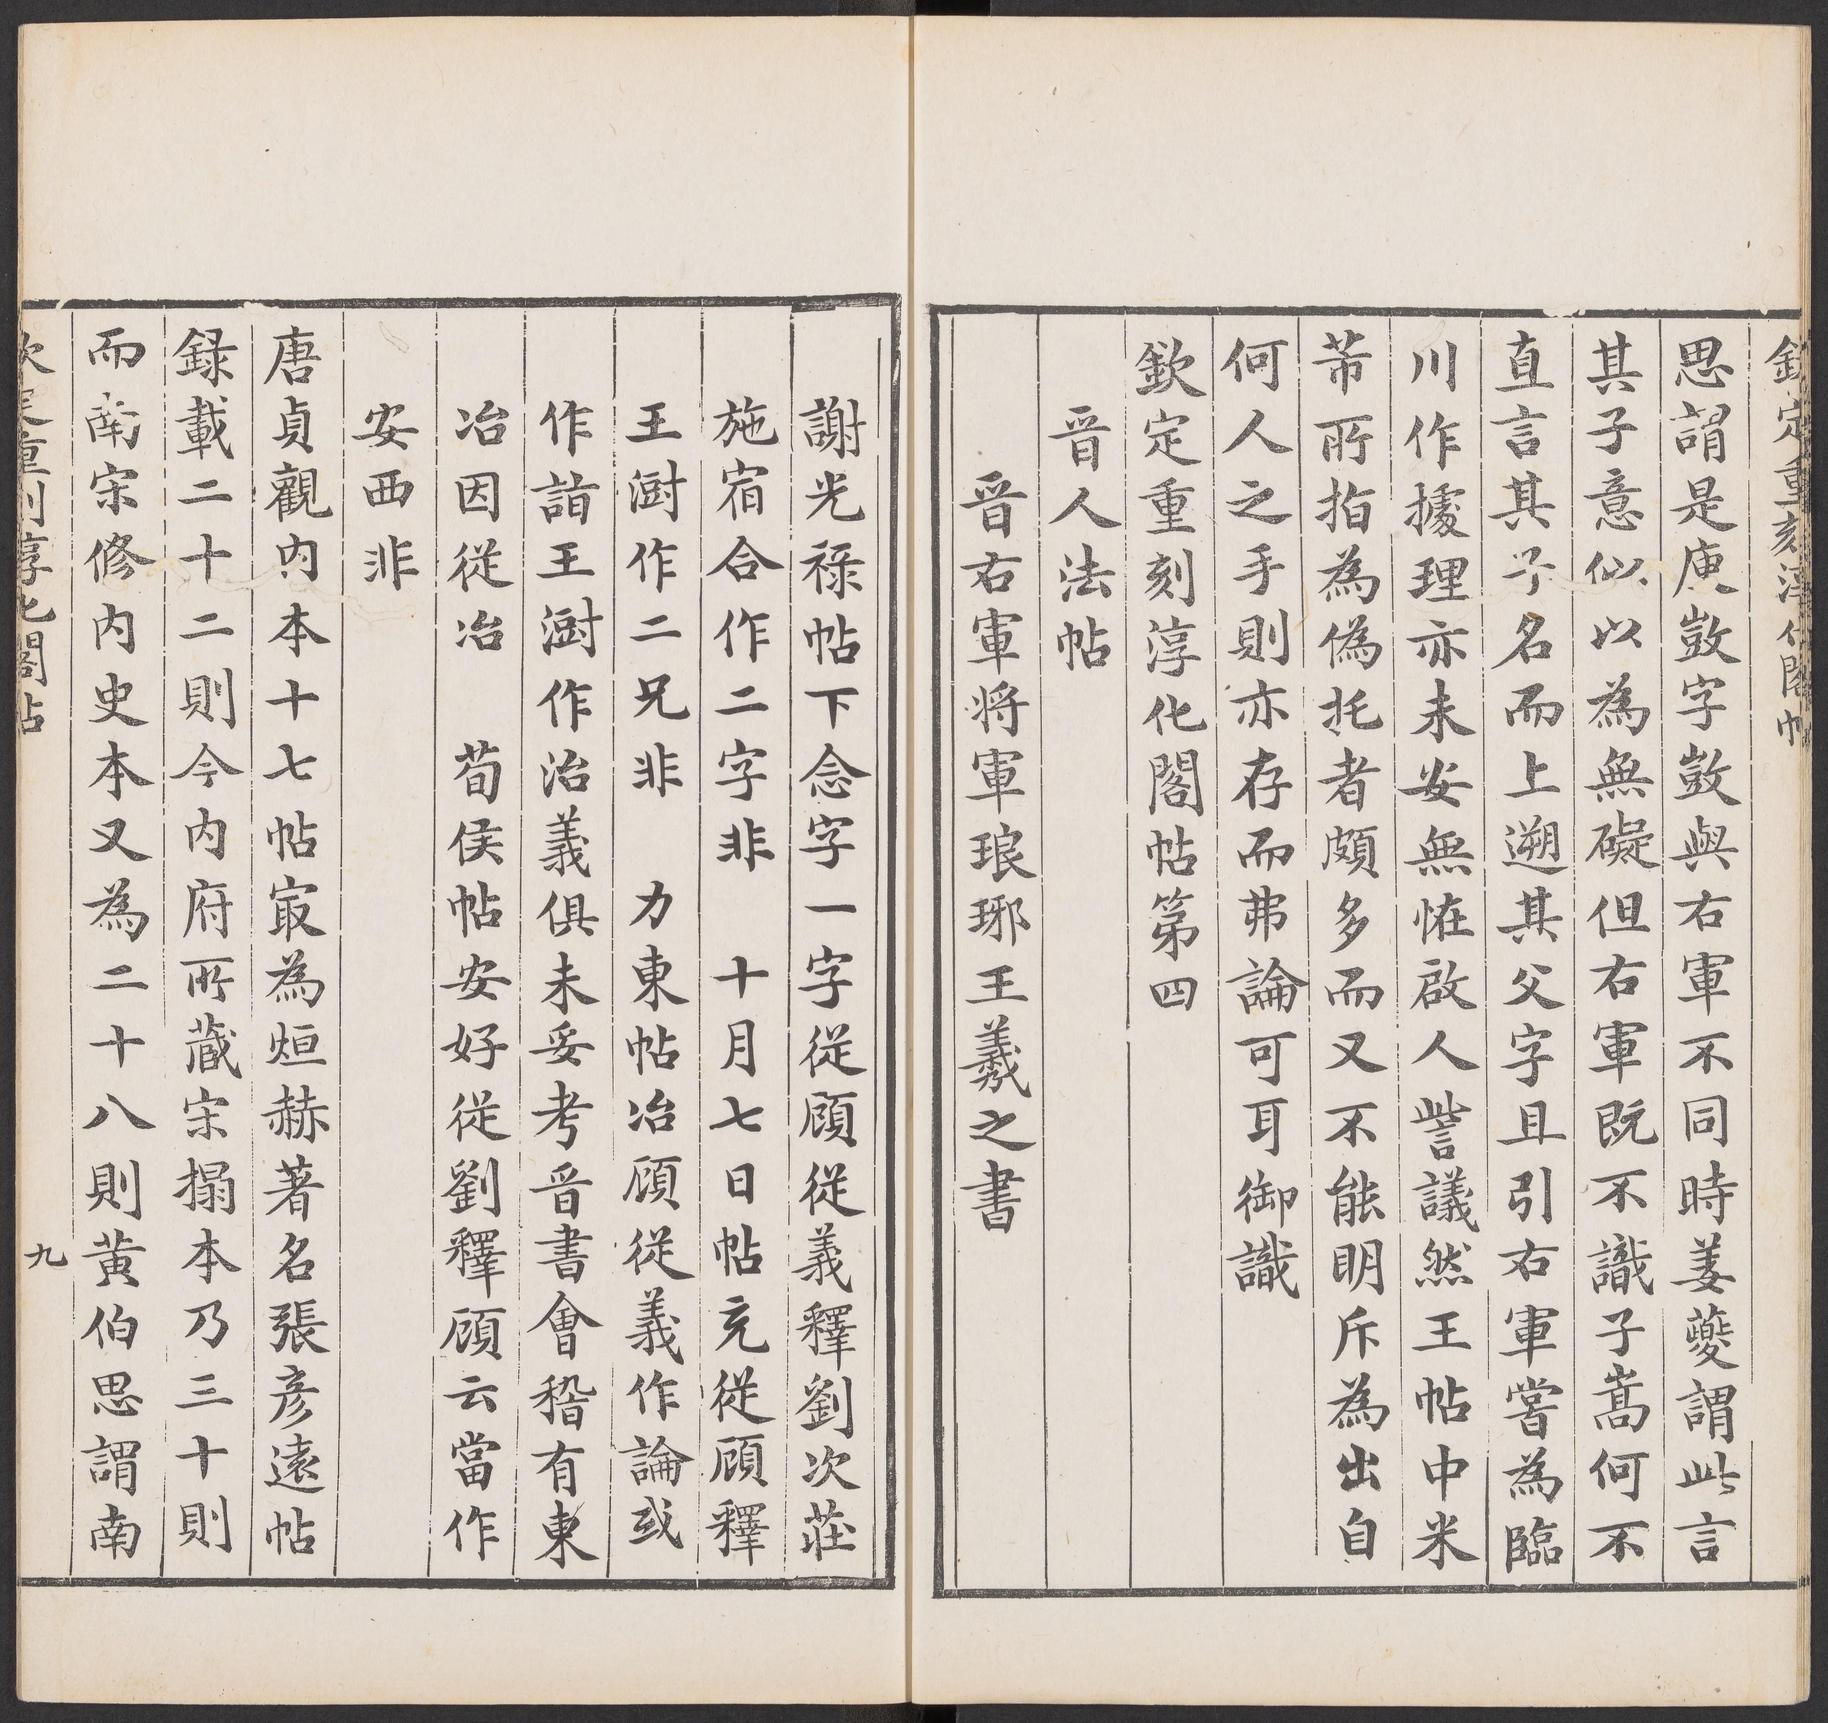 欽定重刻淳化閣帖
思謂是庾敳字敳與右軍不同時姜夔謂此言
其子意似以為無礙但右軍既不識子嵩何不
直言其子名而上遡其父字且引右軍嘗為臨
川作據理亦未妥無怪啟人訾議然王帖中米
芾所指為偽托者頗多而又不能明斥為出自
何人之手則亦存而弗論可耳御識
欽定重刻淳化閣帖第四
晉人法帖
晉右軍將軍琅琊王羲之書
謝光祿帖下念字一字從顧從義釋劉次莊
施宿合作二字非 十月七日帖充從顧釋
王澍作二兄非 力東帖冶顧從義作論或
作詣王澍作治義俱未妥考晉書會稽有東
冶因從冶 荀侯帖安好從劉釋顧云當作
安西非
唐貞觀內本十七帖㝡為烜赫著名張彥遠帖
録載二十二則今內府所藏宋搨本乃三十則
而南宋修內史本又為二十八則黃伯思謂南
欽定重刻淳化閣帖
九